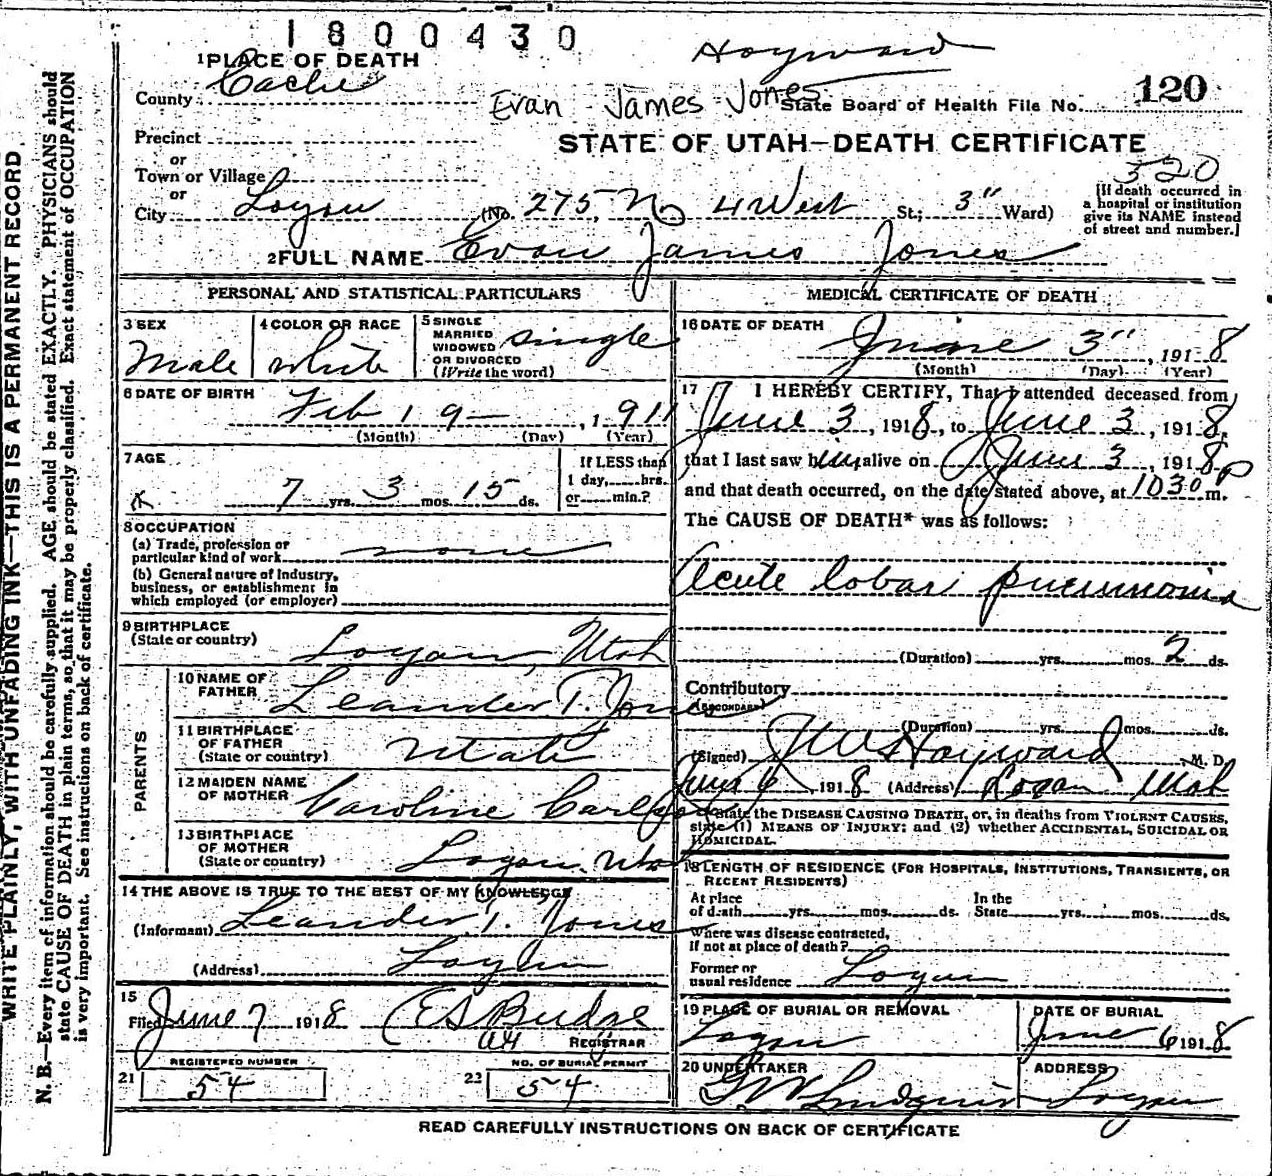 1800430
Hayward
1 PLACE OF DEATH
County Cache
Evan James Jones
State Board of Health File No. 120
Precinct
STATE OF UTAH—DEATH CERTIFICATE
or
Town or Village
320
or
City Logan (No. 275 N 4 West St.; 3" Ward)
[If death occurred in
a hospital or institution
give its NAME instead
of street and number.]
2 FULL NAME Evan James Jones
PERSONAL AND STATISTICAL PARTICULARS
3 SEX
Male
4 COLOR OR RACE
white
5 SINGLE
MARRIED
WIDOWED
OR DIVORCED
(Write the word)
single
6 DATE OF BIRTH
Feb 19 — , 1911
(Month) (Day) (Year)
7 AGE
7 yrs. 3 mos. 15 ds.
If LESS than
1 day, hrs.
or min.?
8 OCCUPATION
(a) Trade, profession or
particular kind of work none
(b) General nature of Industry,
business, or establishment in
which employed (or employer)
9 BIRTHPLACE
(State or country) Logan, Utah
PARENTS
10 NAME OF
FATHER Leander T. Jones
11 BIRTHPLACE
OF FATHER
(State or country) Utah
12 MAIDEN NAME
OF MOTHER Caroline
13 BIRTHPLACE
OF MOTHER
(State or country) Logan, Utah
14 THE ABOVE IS TRUE TO THE BEST OF MY KNOWLEDGE
(Informant) Leander T. Jones
(Address) Logan
15
Filed June 7 1918 E S Budge
REGISTRAR
REGISTERED NUMBER
21 54
NO. OF BURIAL PERMIT
22 54
MEDICAL CERTIFICATE OF DEATH
16 DATE OF DEATH
June 3", 1918
(Month) (Day) (Year)
17 I HEREBY CERTIFY, That I attended deceased from
June 3, 1918, to June 3, 1918,
that I last saw him alive on June 3, 1918
and that death occurred, on the date stated above, at 1030 P m.
The CAUSE OF DEATH* was as follows:
Acute lobar pneumonia
(Duration) yrs. mos. 2 ds.
Contributory
(SECONDARY)
(Duration) yrs. mos. ds.
(Signed) Hayward M. D.
June 6 1918 (Address) Logan Utah
*State the DISEASE CAUSING DEATH, or, in deaths from VIOLENT CAUSES,
state (1) MEANS OF INJURY; and (2) whether ACCIDENTAL, SUICIDAL OR
HOMICIDAL.
18 LENGTH OF RESIDENCE (FOR HOSPITALS, INSTITUTIONS, TRANSIENTS, OR
RECENT RESIDENTS)
At place
of death yrs. mos. ds.
In the
State yrs. mos. ds.
Where was disease contracted,
if not at place of death?
Former or
usual residence Logan
19 PLACE OF BURIAL OR REMOVAL
Logan
DATE OF BURIAL
June 6 1918
20 UNDERTAKER
Lindquist
ADDRESS
Logan
READ CAREFULLY INSTRUCTIONS ON BACK OF CERTIFICATE
WRITE PLAINLY, WITH UNFADING INK—THIS IS A PERMANENT RECORD.
N. B.—Every item of information should be carefully supplied. AGE should be stated EXACTLY. PHYSICIANS should
state CAUSE OF DEATH in plain terms, so that it may be properly classified. Exact statement of OCCUPATION
is very important. See instructions on back of certificate.